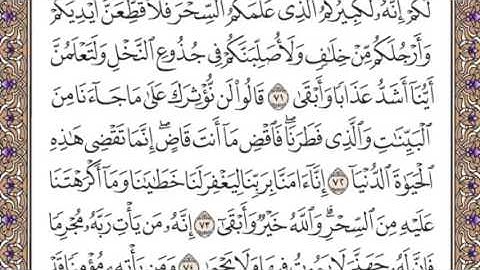 لَكُمْ إِنَّهُۥ لَكَبِيرُكُمُ ٱلَّذِى عَلَّمَكُمُ ٱلسِّحْرَ فَلَأُقَطِّعَنَّ أَيْدِيَكُمْ
وَأَرْجُلَكُم مِّنْ خِلَٰفٍ وَلَأُصَلِّبَنَّكُمْ فِى جُذُوعِ ٱلنَّخْلِ وَلَتَعْلَمُنَّ
أَيُّنَآ أَشَدُّ عَذَابًا وَأَبْقَىٰ ٧١ قَالُوا۟ لَن نُّؤْثِرَكَ عَلَىٰ مَا جَآءَنَا مِنَ
ٱلْبَيِّنَٰتِ وَٱلَّذِى فَطَرَنَا ۖ فَٱقْضِ مَآ أَنتَ قَاضٍ ۖ إِنَّمَا تَقْضِى هَٰذِهِ
ٱلْحَيَوٰةَ ٱلدُّنْيَآ ٧٢ إِنَّآ ءَامَنَّا بِرَبِّنَا لِيَغْفِرَ لَنَا خَطَٰيَٰنَا وَمَآ أَكْرَهْتَنَا
عَلَيْهِ مِنَ ٱلسِّحْرِ ۗ وَٱللَّهُ خَيْرٌ وَأَبْقَىٰٓ ٧٣ إِنَّهُۥ مَن يَأْتِ رَبَّهُۥ مُجْرِمًا
فَإِنَّ لَهُۥ جَهَنَّمَ لَا يَمُوتُ فِيهَا وَلَا يَحْيَىٰ ٧٤ وَمَن يَأْتِهِۦ مُؤْمِنًا قَدْ